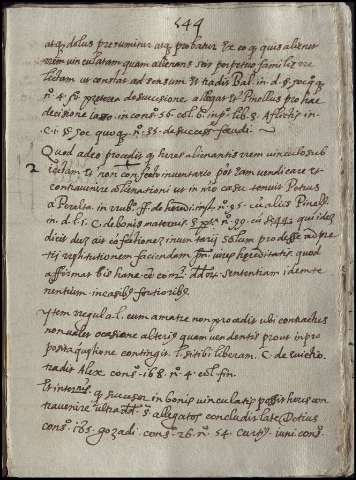 544
atq; dolus presumitur atq; probatur Ex eo q; quis alienet
rem vinculatam quam alienans seit perpetuo familiæ re
lictam ut constat ad sensum Et tradit Bal. in d. §
n.º 4. præterea de sucesione, allegat et Pinellus pro hac
decisione Iasso. in cons. 56. col. 6. lib. 3. Aflictis in
c. i. § hoc quoq; n.º 35. de success. feudi.
Quod adeo procedit q; heres alienantis rem vinculo sub
2 iectam Et non confecto inventario potest eam vendicare et
contravenire alienationi ut in nro casu tenuit Petrus
a Peralta. in rubr. ff. de heredi. n.º 95. alis Pinell.
in d. l. 1. C. de bonis maternis n.º 99. qui idem
dicit dez. ait confectionem inventarij solum prodesse
tij restitutionem faciendam hereditatis. quod
affirmat Eis hanc sententiam idem te
nentium in casibus fortioribus.
Ytem regula l. cum matre non procedit ubi contractus
non valet ocasione alterius quam vendentis prout in pro
posita questione contingit. l. si tibi liberam. C. de evictio.
tradit Alex. cons. 168. n.º 4. col. fin.
Et in terminis q; sucesor in bonis vinculatis possit heres con
travenire ultra allegatos concludit late Decius
cons. 165. gozadi. cons. 26. n.º 54. Curtij. iuni. cons.